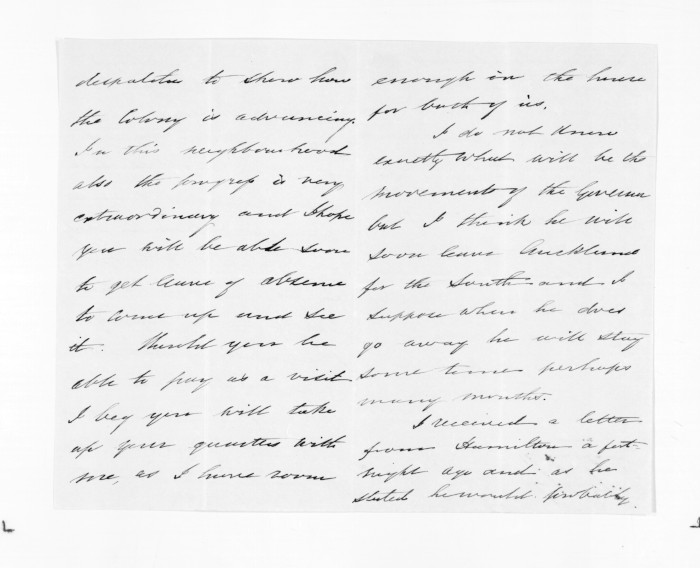 despatches to show how
the Colony is advancing.
In this neighbourhood
also the progress is very
extraordinary and I hope
you will be able soon
to get leave of absence
to come up and see
it. Should you be
able to pay us a visit
I beg you will take
up your quarters with
me, as I have room
enough in the house
for both of us.
I do not know
exactly what will be the
movements of the Governor
but I think he will
soon leave Auckland
for the South and I
suppose when he does
go away he will stay
some time perhaps
many months.
I received a letter
from Hamilton a fort-
night ago and as he
stated he would probably